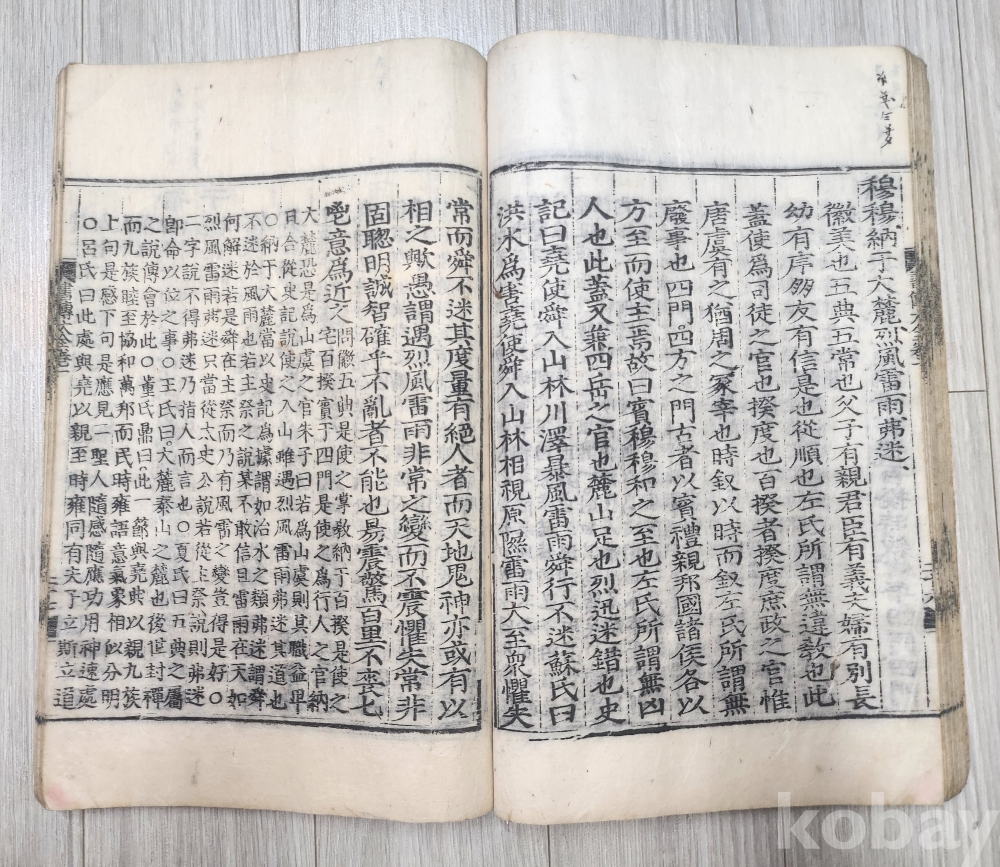 穆穆納于大麓烈風雷雨弗迷
徽美也五典五常也父子有親君臣有義夫婦有別長
幼有序朋友有信是也從順也左氏所謂無違敎也此
蓋使爲司徒之官也揆度也百揆者揆度庶政之官惟
唐虞有之猶周之冢宰也時叙以時而叙左氏所謂無
廢事也四門四方之門古者以賓禮親邦國諸侯各以
方至而使主焉故曰賓穆穆和之至也左氏所謂無凶
人也此蓋又兼四岳之官也麓山足也烈迅迷錯也史
記曰堯使舜入山林川澤暴風雷雨舜行不迷蘇氏曰
洪水爲害堯使舜入山林相視原隰雷雨大至衆懼失
常而舜不迷其度量有絕人者而天地鬼神亦或有以
相之歟愚謂遇烈風雷雨非常之變而不震懼失常非
固聰明誠智確乎不亂者不能也易震驚百里不喪匕
鬯意爲近之
問徽五典是使之掌敎納于百揆是使之
宅百揆賓于四門是使之爲行人之官納
大麓恐是爲山虞之官朱子曰若爲山虞則其職益卑
且合從史記說使之入山雖遇烈風雷雨弗迷其道也
○納于大麓當以史記爲據謂如治水之類弗迷謂舜
不迷於風雨也若主祭之說某不敢信且雷雨在天如
何解迷若是舜在主祭而乃有風雷之變豈得是好○
烈風雷雨弗迷只當從太史公說若從主祭說則弗迷
二字說不得弗迷乃指人而言也○夏氏曰五典之屬
卽命以位之事○王氏曰大麓泰山之麓也後世封禪
之說傅會於此○董氏鼎曰此一節與堯典以親九族
而九族睦至協和萬邦而民時雍語意氣象相似分明
上句是感下句是應見二聖人隨感隨應功用神速處
○呂氏曰此處與堯以親至時雍同有夫子立斯立道
書傳大全卷一
kobay